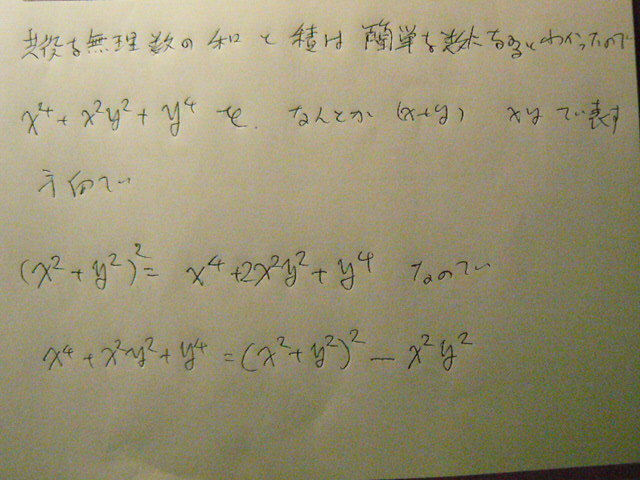 共役な無理数の和と積は簡単な数になるとわかったので
x⁴+x²y²+y⁴ を なんとか (x+y) xy で表す
方向で
(x²+y²)²= x⁴+2x²y²+y⁴ なので
x⁴+x²y²+y⁴=(x²+y²)²-x²y²